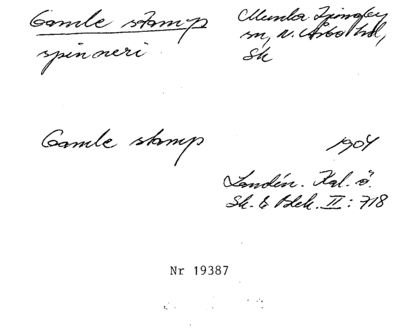 Gamle stamp
spinneri
Munka Ljungby
sn, N. Åsbo hd,
Sk
Gamle stamp
1904
Landén. Kal. ö.
Sk. & Blek. II: 718
Nr 19387